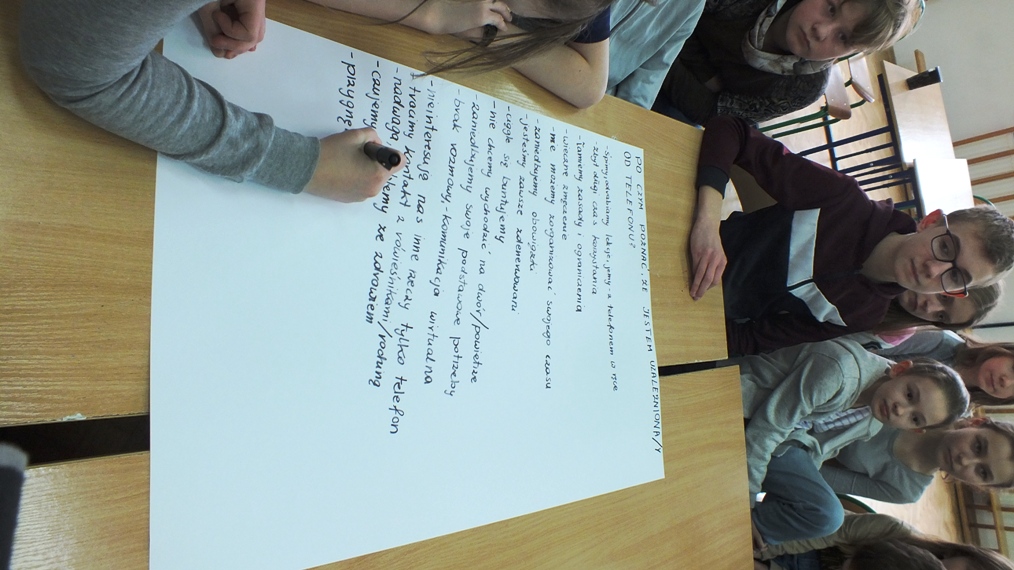 PO CZYM POZNAĆ, ŻE JESTEM UZALEŻNIONA/Y
OD TELEFONU?
- śpimy, odrabiamy lekcje, jemy z telefonem w ręce
- zbyt długi czas korzystania
- łamiemy zasady i ograniczenia
- wieczne zmęczenie
- nie możemy zorganizować swojego czasu
- zaniedbujemy obowiązki
- jesteśmy zawsze zdenerwowani
- ciągle się buntujemy
- nie chcemy wychodzić na dwór/powietrze
zaniedbujemy swoje podstawowe potrzeby
- brak rozmowy, komunikacja wirtualna
- nieinteresują nas inne rzeczy tylko telefon
tracimy kontakt z rówieśnikami/rodziną
- nadwaga ze zdrowiem
- czujemy